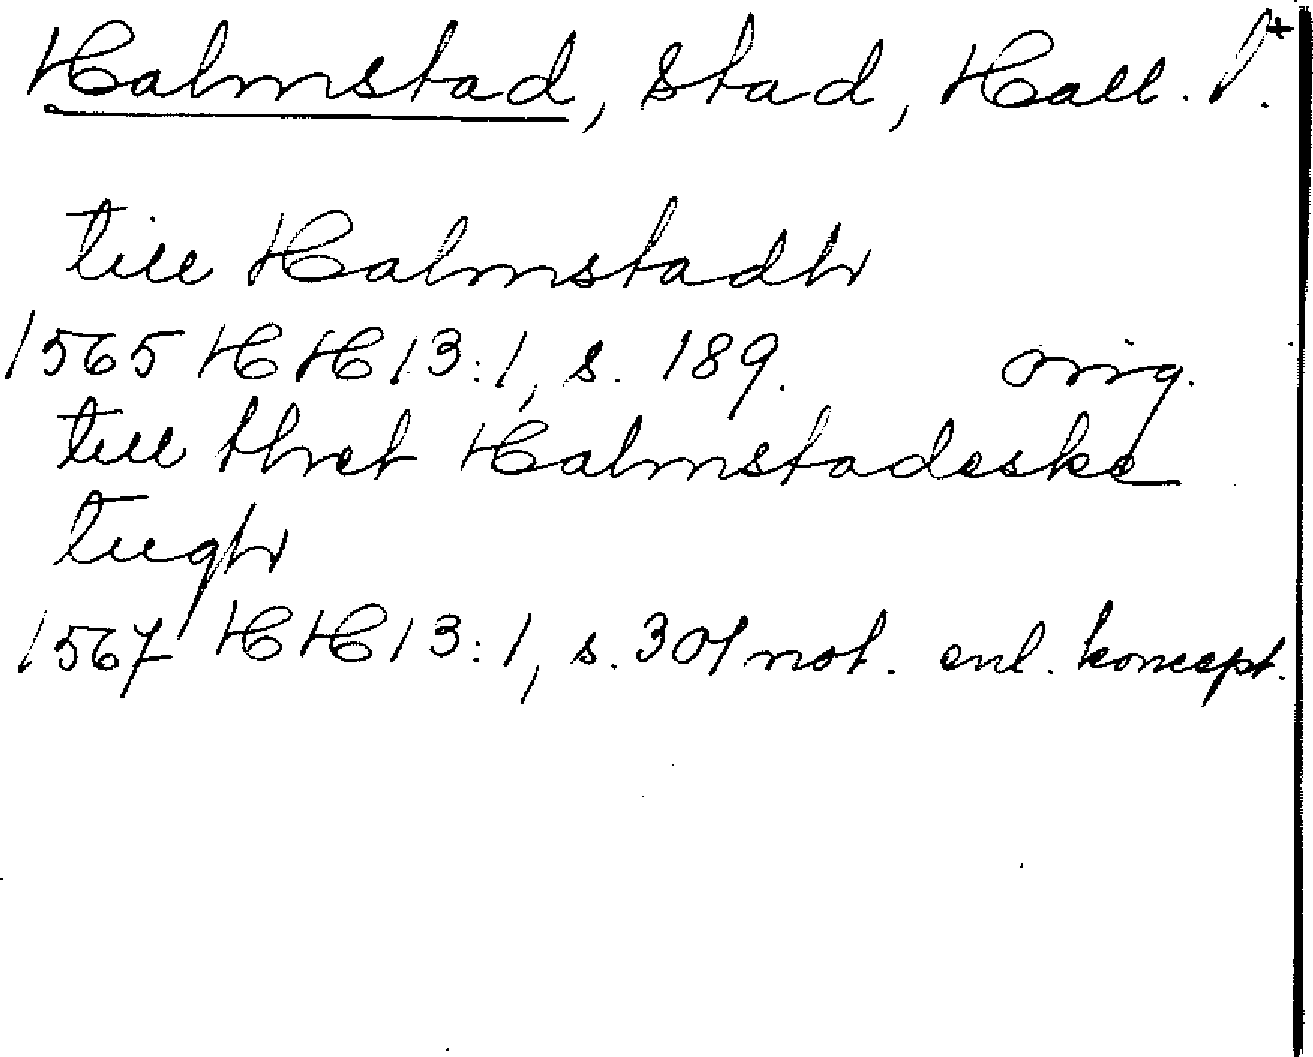 Halmstad, stad, Hall. l.
till Halmstadh
1565 HH 13:1, s. 189. orig.
till thet Halmstadeske
tugh
1567 HH 13:1, s. 301 not. enl. koncept.